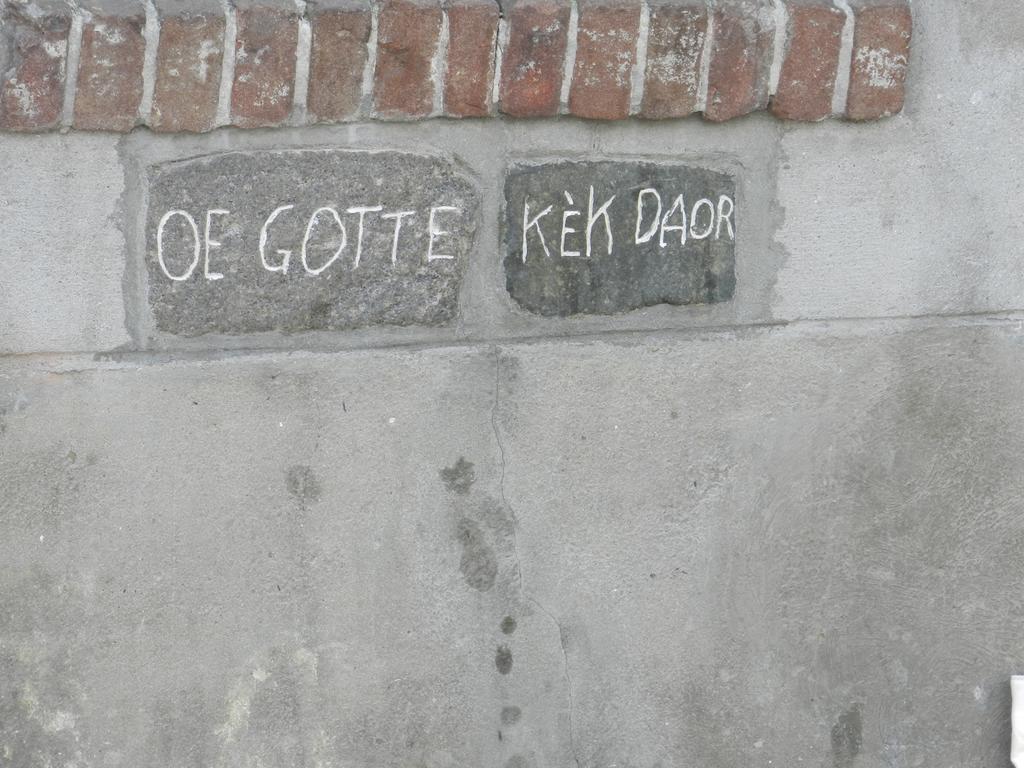 OE GOTTE KÈK DAOR